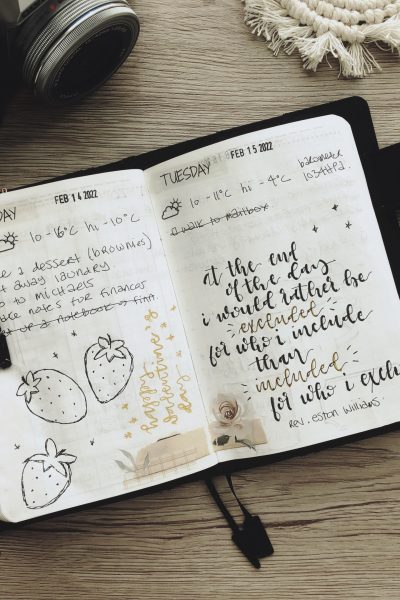 DAY
FEB 14 2022
lo -16°C hi -10°C
a dessert (brownies)
away laundry
to michaels
notes for finances
up a notebook → first
happy
valentine's
day
TUESDAY
FEB 15 2022
lo -11°C hi -4°C
barometer
walk to mailbox
at the end
of the day
i would rather be
excluded
for who i include
than
included
for who i exclu
rev. eston williams